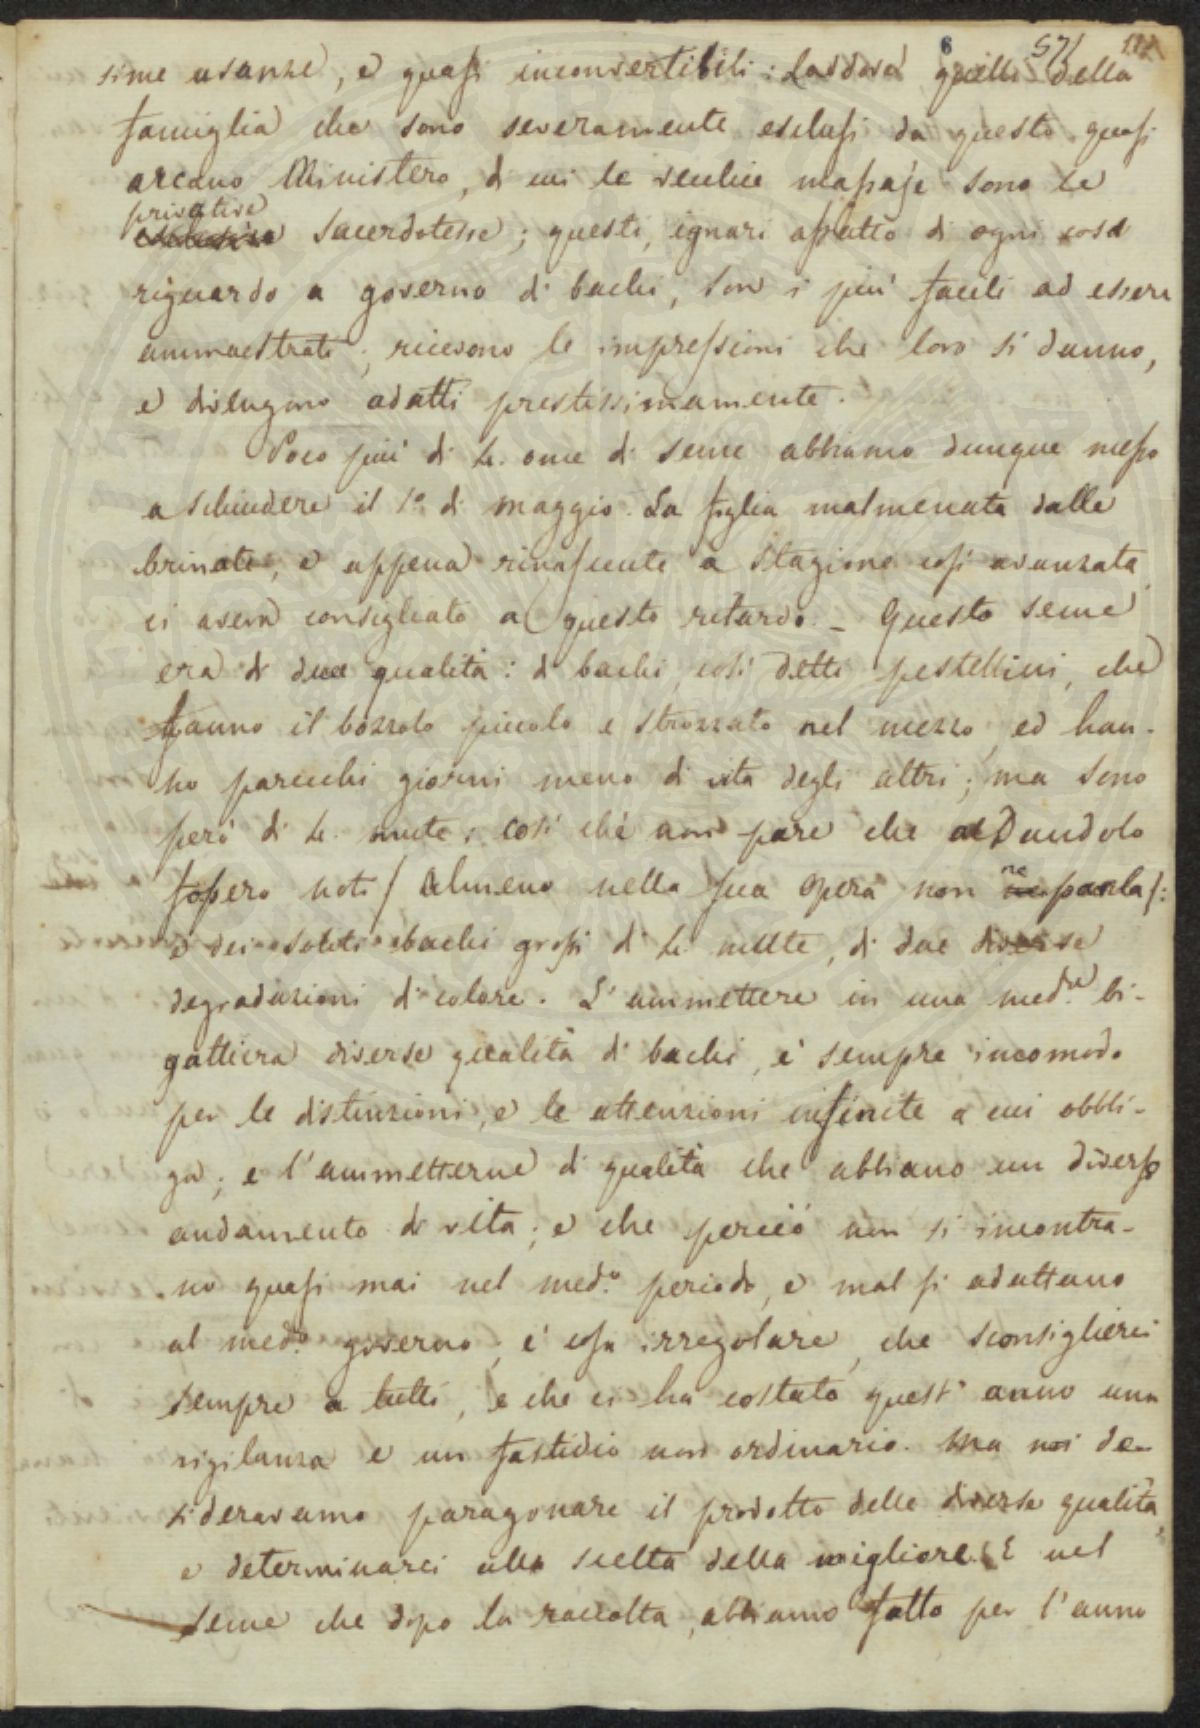 6 571
sime usanze, e quasi inconvertibili: Laddove quelli della
famiglia che sono severamente esclusi da questo quasi
arcano Ministero, di cui le vecchie massaje sono le
privative
sacerdotesse; questi, ignari affatto di ogni cosa
riguardo a governo di bachi, son i più facili ad essere
ammaestrati; ricevono le impressioni che loro si danno,
e divengono adatti prestissimamente.
Poco più di 4. once di seme abbiamo dunque messo
a schiudere il 1º di maggio. La foglia malmenata dalle
brinate, e appena rinascente a stagione così avanzata
ci aveva consigliato a questo ritardo. _ Questo seme
era di due qualità: di bachi così detti pestellini, che
fanno il bozzolo piccolo e strozzato nel mezzo, ed han-
no parecchi giorni meno di vita degli altri; ma sono
però di 4. mute; così che non pare che al Dandolo
fossero noti /: almeno nella sua opera non ne parla /:
e dei soliti bachi grossi di 4. mute, di due diverse
degradazioni di colore. L'ammettere in una med.ª bi-
gattiera diverse qualità di bachi, è sempre incomodo
per le distinzioni, e le attenzioni infinite a cui obbli-
ga; e l'ammetterne di qualità che abbiano un diverso
andamento di vita, e che perciò non si incontra-
no quasi mai nel med.º periodo, e mal si adattano
al med.º governo, è cosa irregolare, che sconsiglierei
sempre a tutti, e che ci ha costato quest'anno una
vigilanza e un fastidio non ordinario. Ma noi de-
sideravamo paragonare il prodotto delle diverse qualità,
e determinarci alla scelta della migliore. E nel
seme che dopo la raccolta, abbiamo fatto per l'anno